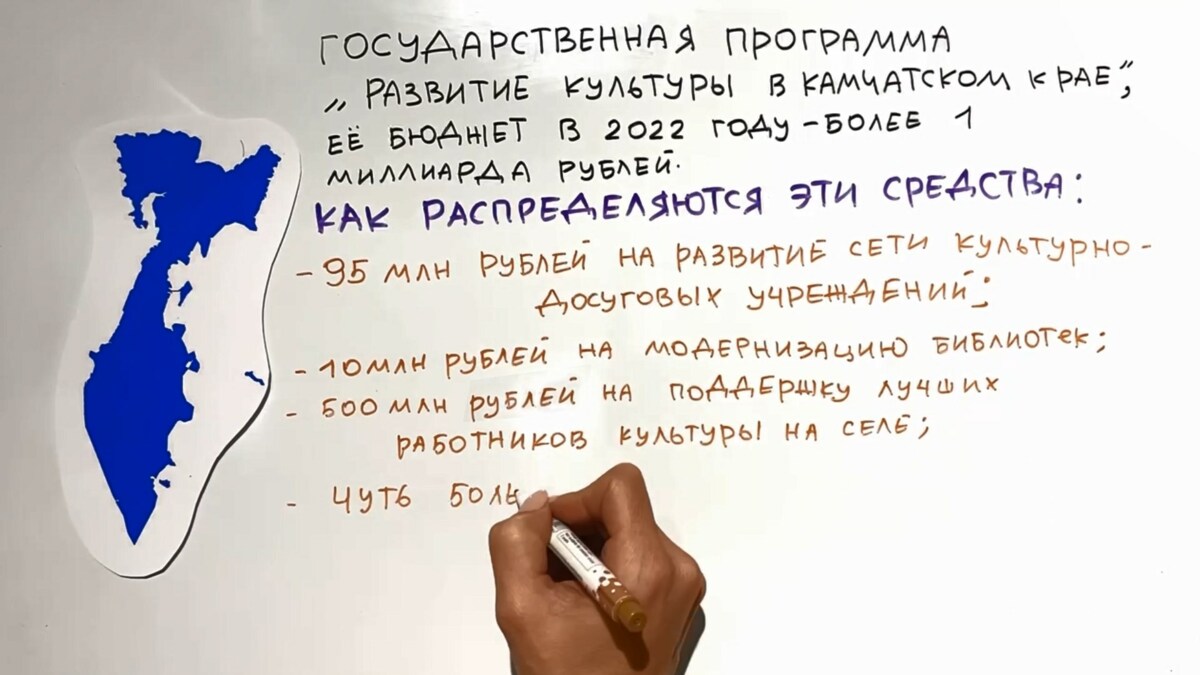 ГОСУДАРСТВЕННАЯ ПРОГРАММА
„ РАЗВИТИЕ КУЛЬТУРЫ В КАМЧАТСКОМ КРАЕ",
ЕЁ БЮДЖЕТ В 2022 ГОДУ - БОЛЕЕ 1
МИЛЛИАРДА РУБЛЕЙ.
КАК РАСПРЕДЕЛЯЮТСЯ ЭТИ СРЕДСТВА:
- 95 МЛН РУБЛЕЙ НА РАЗВИТИЕ СЕТИ КУЛЬТУРНО-
ДОСУГОВЫХ УЧРЕЖДЕНИЙ;
- 10 МЛН РУБЛЕЙ НА МОДЕРНИЗАЦИЮ БИБЛИОТЕК;
- 500 МЛН РУБЛЕЙ НА ПОДДЕРЖКУ ЛУЧШИХ
РАБОТНИКОВ КУЛЬТУРЫ НА СЕЛЕ;
- ЧУТЬ БОЛЬ